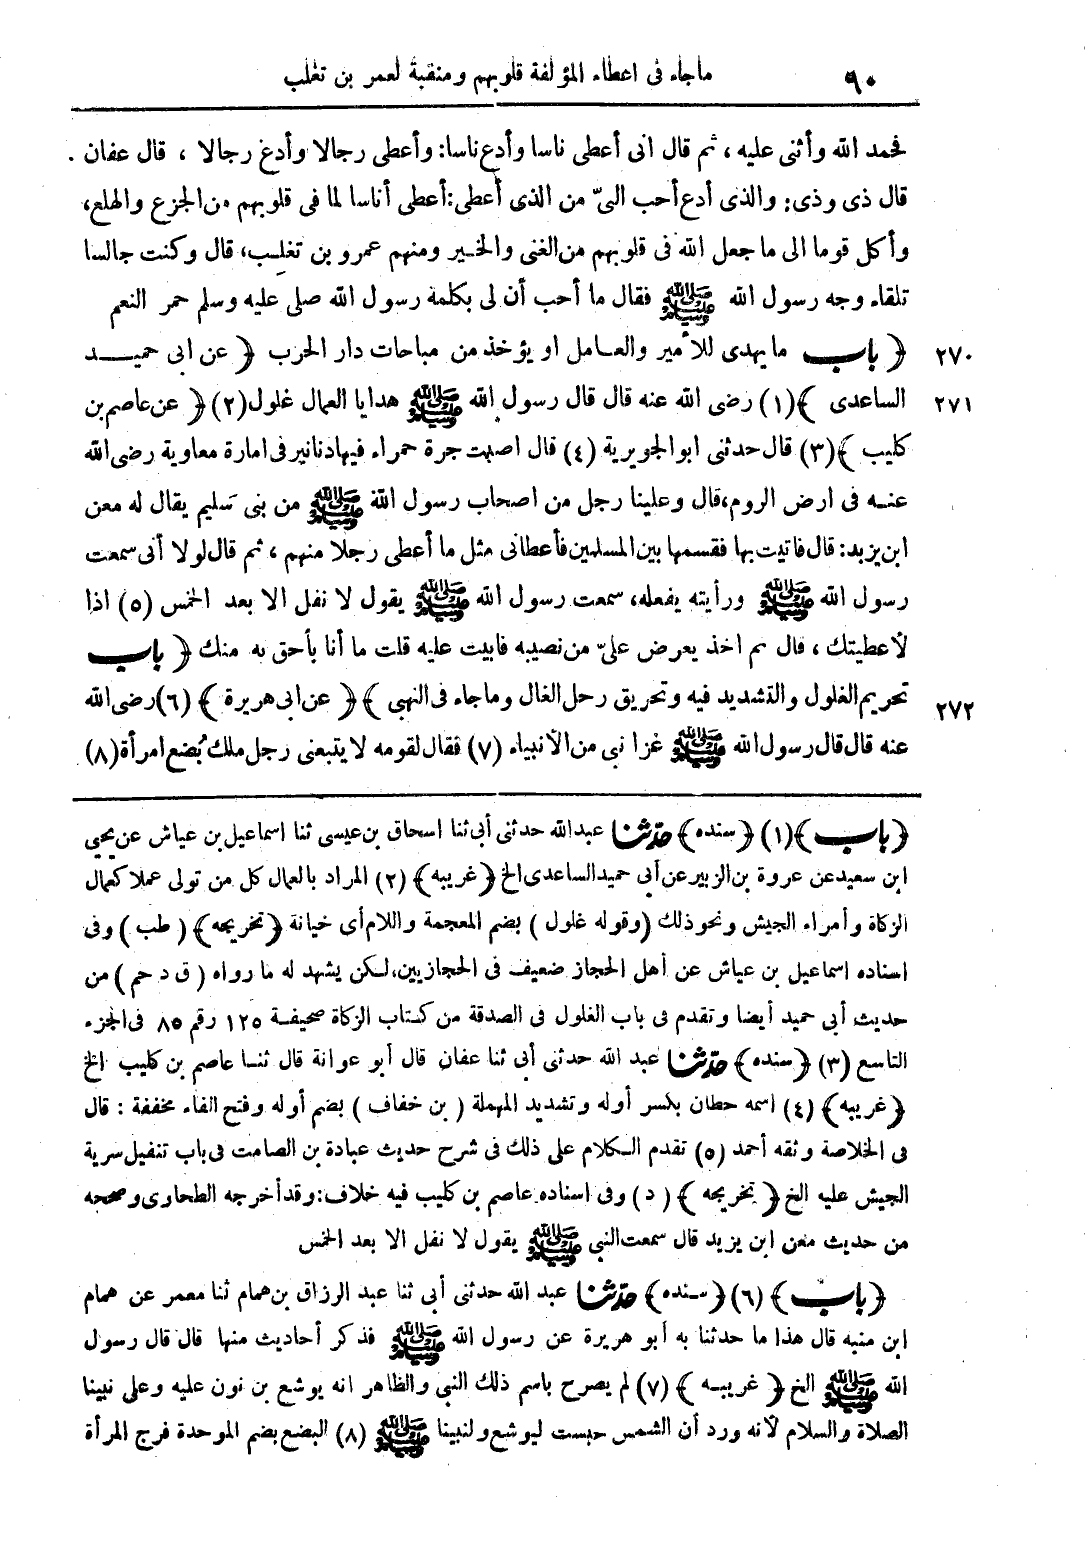 ٩٠ ماجاء فى اعطاء المؤلفة قلوبهم ومنقبة لعمر بن تغلب
فحمد الله وأثنى عليه ، ثم قال انى أعطى ناسا وأدع ناسا: وأعطى رجالا وأدع رجالا ، قال عفان .
قال ذى وذى: والذى أدع أحب الىّ من الذى أعطى: أعطى أناسا لما فى قلوبهم من الجزع والهلع،
وأكل قوما الى ما جعل الله فى قلوبهم من الغنى والخير ومنهم عمرو بن تغلب، قال وكنت جالسا
تلقاء وجه رسول الله ﷺ فقال ما أحب أن لى بكلمة رسول الله صلى عليه وسلم حمر النعم
٢٧٠ ﴿ باب ما يهدى للأمير والعامل او يؤخذ من مباحات دار الحرب ﴿ عن ابى حميد
٢٧١ الساعدى ﴾ (١) رضى الله عنه قال قال رسول الله ﷺ هدايا العمال غلول (٢) ﴿ عن عاصم بن
كليب ﴾ (٣) قال حدثنى ابو الجويرية (٤) قال اصبت جرة حمراء فيها دنانير فى امارة معاوية رضى الله
عنه فى ارض الروم، قال وعلينا رجل من اصحاب رسول الله ﷺ من بنى سليم يقال له معن
ابن يزيد: قال فاتيت بها فقسمها بين المسلمين فأعطانى مثل ما أعطى رجلا منهم ، ثم قال لولا أنى سمعت
رسول الله ﷺ ورأيته يفعله، سمعت رسول الله ﷺ يقول لا نفل الا بعد الخمس (٥) اذا
لأعطيتك ، قال ثم اخذ يعرض علىّ من نصيبه فابيت عليه قلت ما أنا بأحق به منك ﴿ باب
تحريم الغلول والتشديد فيه وتحريق رحل الغال وما جاء فى النهبى ﴾ ﴿ عن ابى هريرة ﴾ (٦) رضى الله
٢٧٢ عنه قال قال رسول الله ﷺ غزا نبى من الأنبياء (٧) فقال لقومه لا يتبعنى رجل ملك بُضع امرأة (٨)
﴿ باب ﴾ (١) ﴿ سنده ﴾ حدّثنا عبد الله حدثنى أبى ثنا اسحاق بن عيسى ثنا اسماعيل بن عياش عن يحيى
ابن سعيد عن عروة بن الزبير عن أبى حميد الساعدى الخ ﴿ غريبه ﴾ (٢) المراد بالعمال كل من تولى عملا كعمال
الزكاة وأمراء الجيش ونحو ذلك (وقوله غلول) بضم المعجمة واللام أى خيانة ﴿ تخريجه ﴾ (طب) وفى
اسناده اسماعيل بن عياش عن أهل الحجاز ضعيف فى الحجازيين، لكن يشهد له ما رواه (ق د حم) من
حديث أبى حميد أيضا وتقدم فى باب الغلول فى الصدقة من كتاب الزكاة صحيفة ١٢٥ رقم ٨٥ فى الجزء
التاسع (٣) ﴿ سنده ﴾ حدّثنا عبد الله حدثنى أبى ثنا عفان قال أبو عوانة قال ثنا عاصم بن كليب الخ
﴿ غريبه ﴾ (٤) اسمه حطان بكسر أوله وتشديد المهملة (بن خفاف) بضم أوله وفتح الفاء مخففة : قال
فى الخلاصة وثقه أحمد (٥) تقدم الكلام على ذلك فى شرح حديث عبادة بن الصامت فى باب تنفيل سرية
الجيش عليه الخ ﴿ تخريجه ﴾ (د) وفى اسناده عاصم بن كليب فيه خلاف: وقد أخرجه الطحاوى وصححه
من حديث معن ابن يزيد قال سمعت النبى ﷺ يقول لا نفل الا بعد الخمس
﴿ باب ﴾ (٦) ﴿ سنده ﴾ حدّثنا عبد الله حدثنى أبى ثنا عبد الرزاق بن همام ثنا معمر عن همام
ابن منبه قال هذا ما حدثنا به أبو هريرة عن رسول الله ﷺ فذكر أحاديث منها قال قال رسول
الله ﷺ الخ ﴿ غريبه ﴾ (٧) لم يصرح باسم ذلك النبى والظاهر انه يوشع بن نون عليه وعلى نبينا
الصلاة والسلام لأنه ورد أن الشمس حبست ليوشع ولنبينا ﷺ (٨) البضع بضم الموحدة فرج المرأة